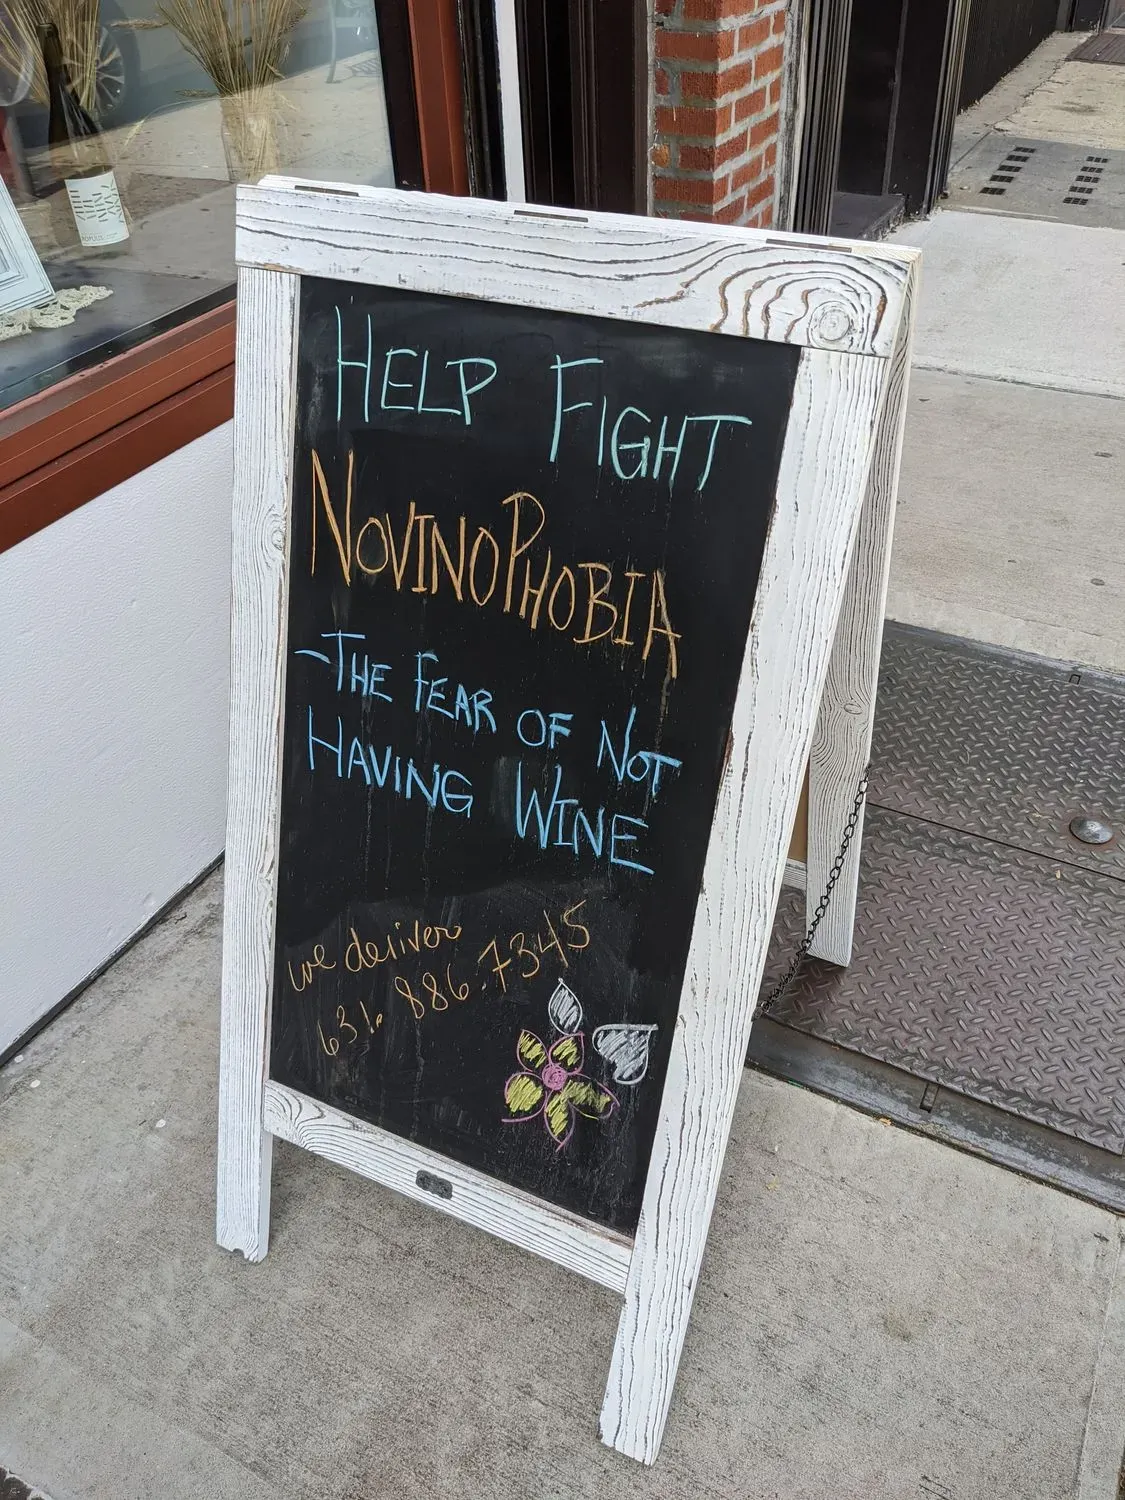 HELP FIGHT
NOVINOPHOBIA
-THE FEAR OF NOT
HAVING WINE
we deliver
631. 886.7345
POPULIS